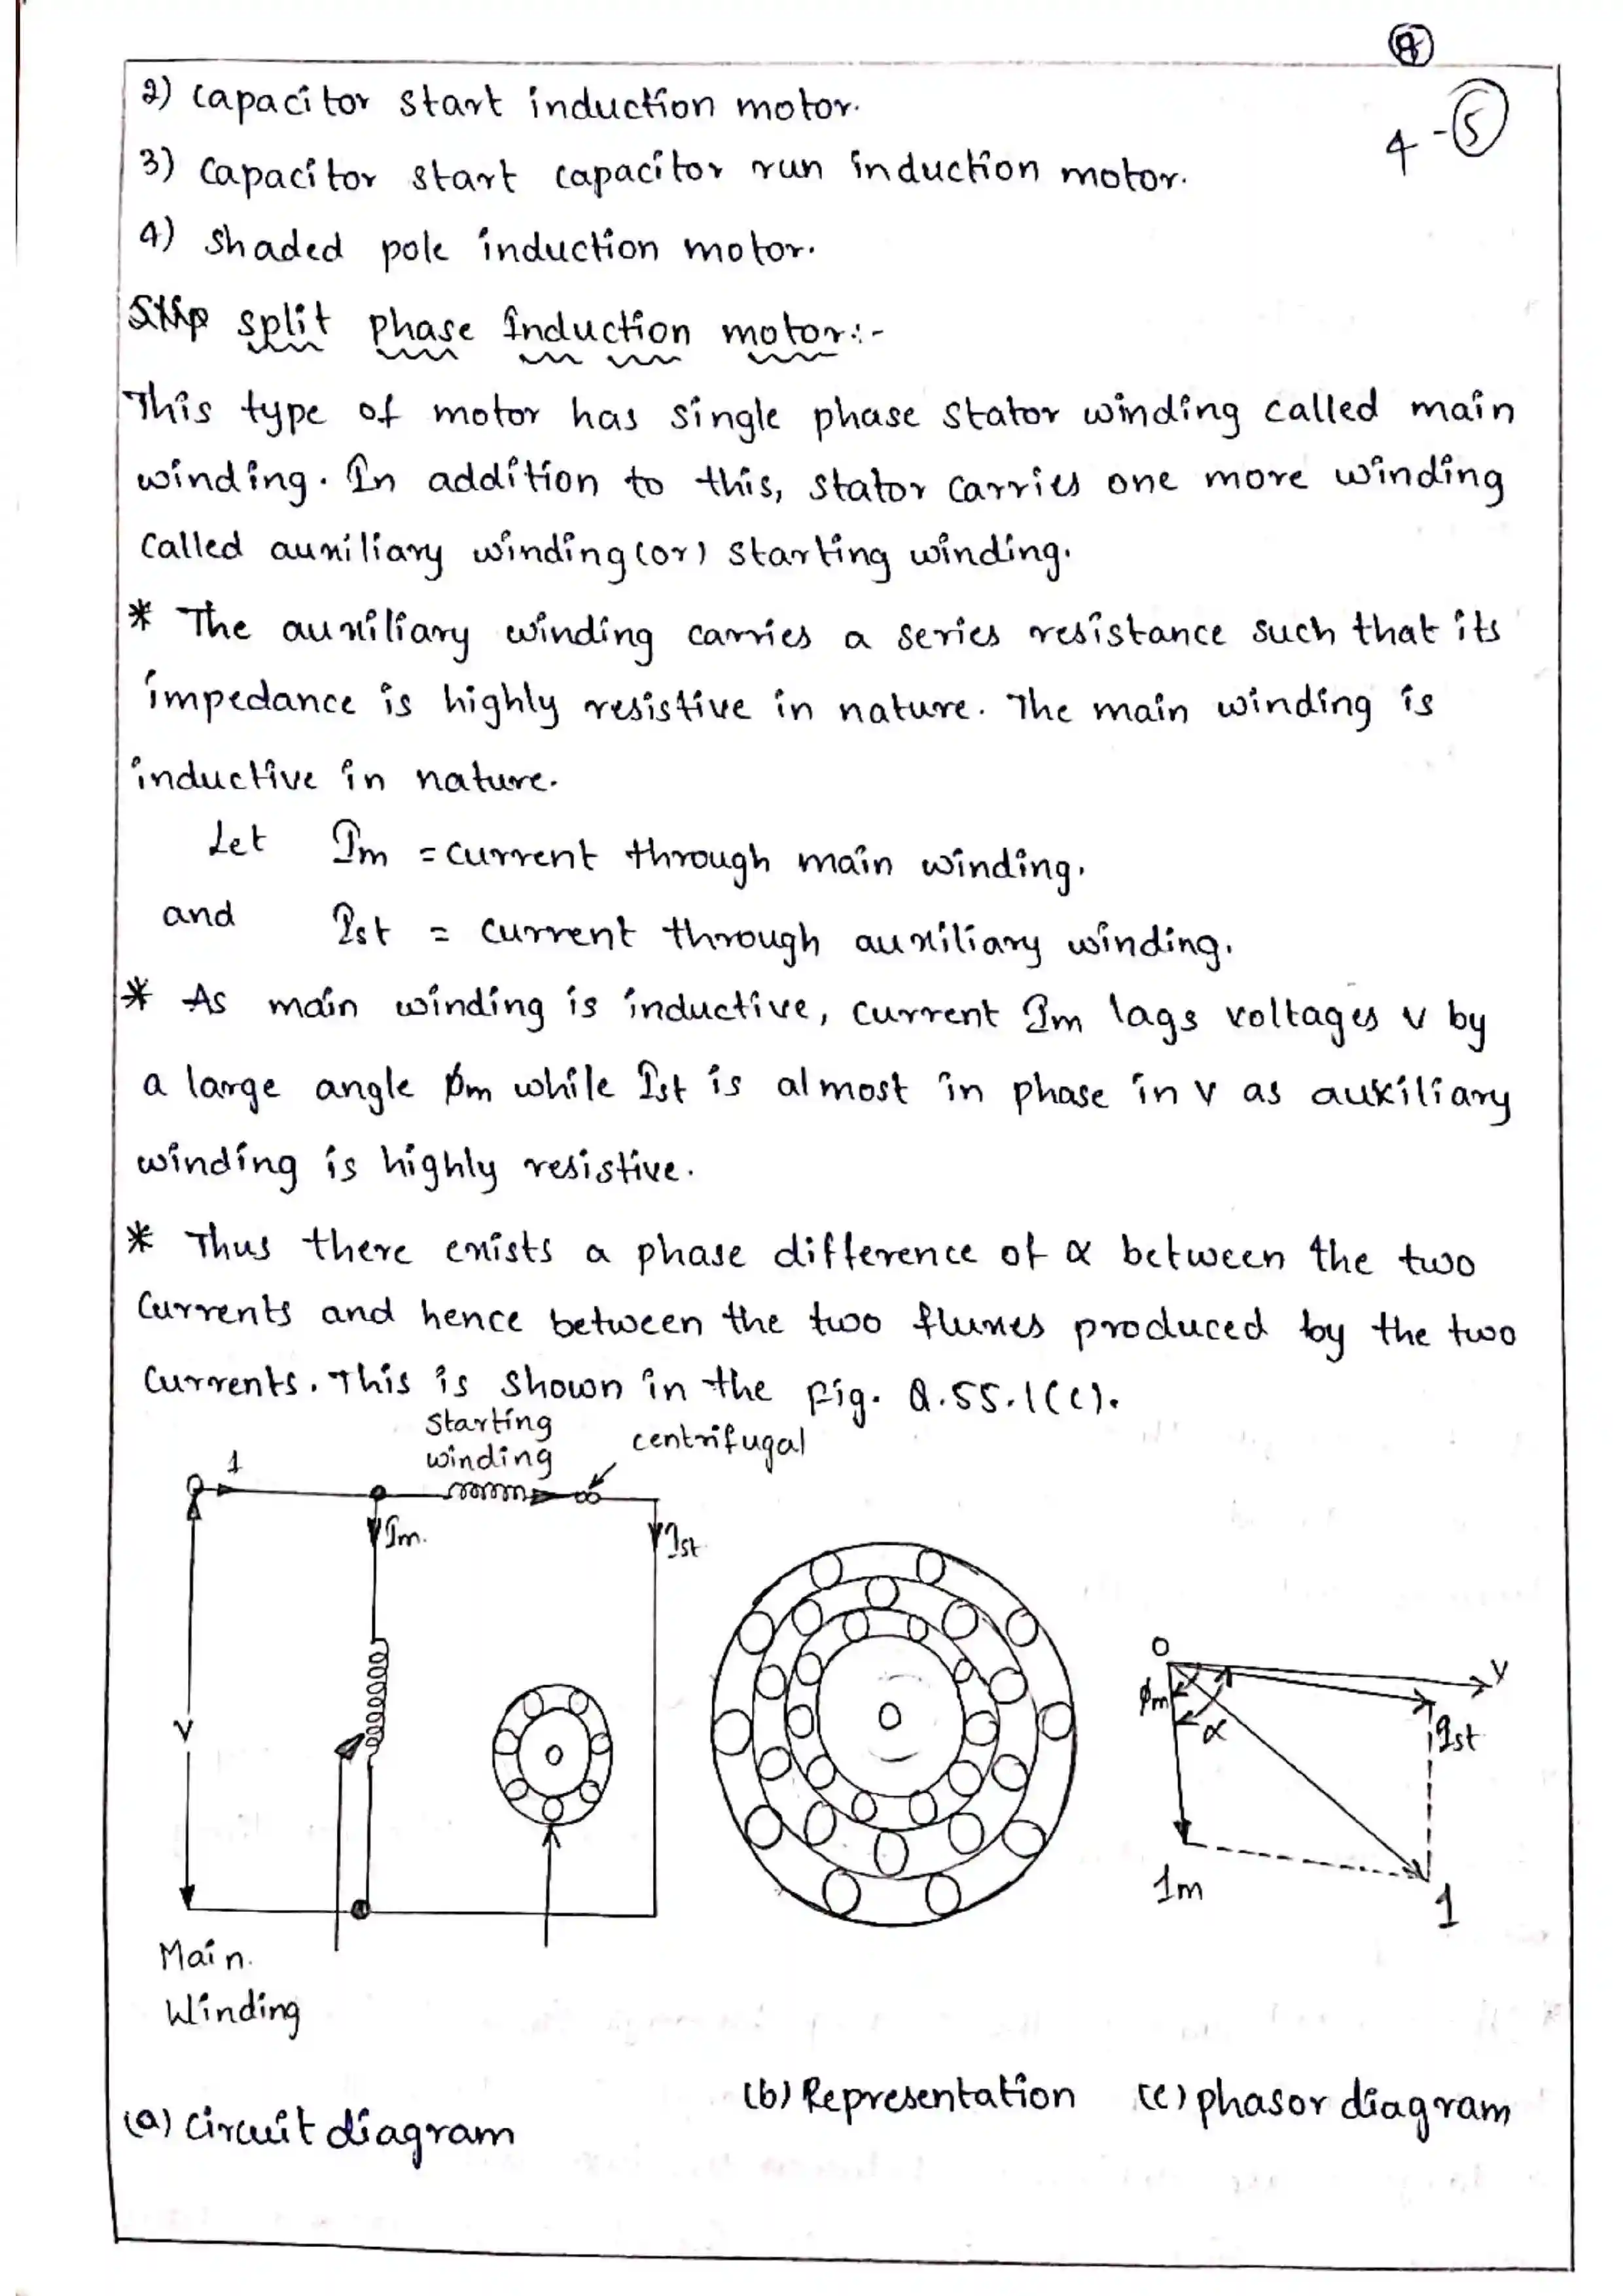 8
2) Capacitor start induction motor.
4-5
3) Capacitor start capacitor run induction motor.
4) Shaded pole induction motor.
split phase Induction motor:-
This type of motor has single phase stator winding called main
winding. In addition to this, stator carries one more winding
called auxiliary winding (or) starting winding.
* The auxiliary winding carries a series resistance such that its
impedance is highly resistive in nature. The main winding is
inductive in nature.
Let Im = current through main winding.
and Ist = current through auxiliary winding.
* As main winding is inductive, current Im lags voltages v by
a large angle ϕm while Ist is almost in phase in v as auxiliary
winding is highly resistive.
* Thus there exists a phase difference of α between the two
currents and hence between the two fluxes produced by the two
currents. This is shown in the fig. Q.55.1(c).
starting
winding
centrifugal
I
Im.
Ist
V
Main.
Winding
O
V
ϕm
α
Ist
Im
I
(a) circuit diagram
(b) Representation
(c) phasor diagram